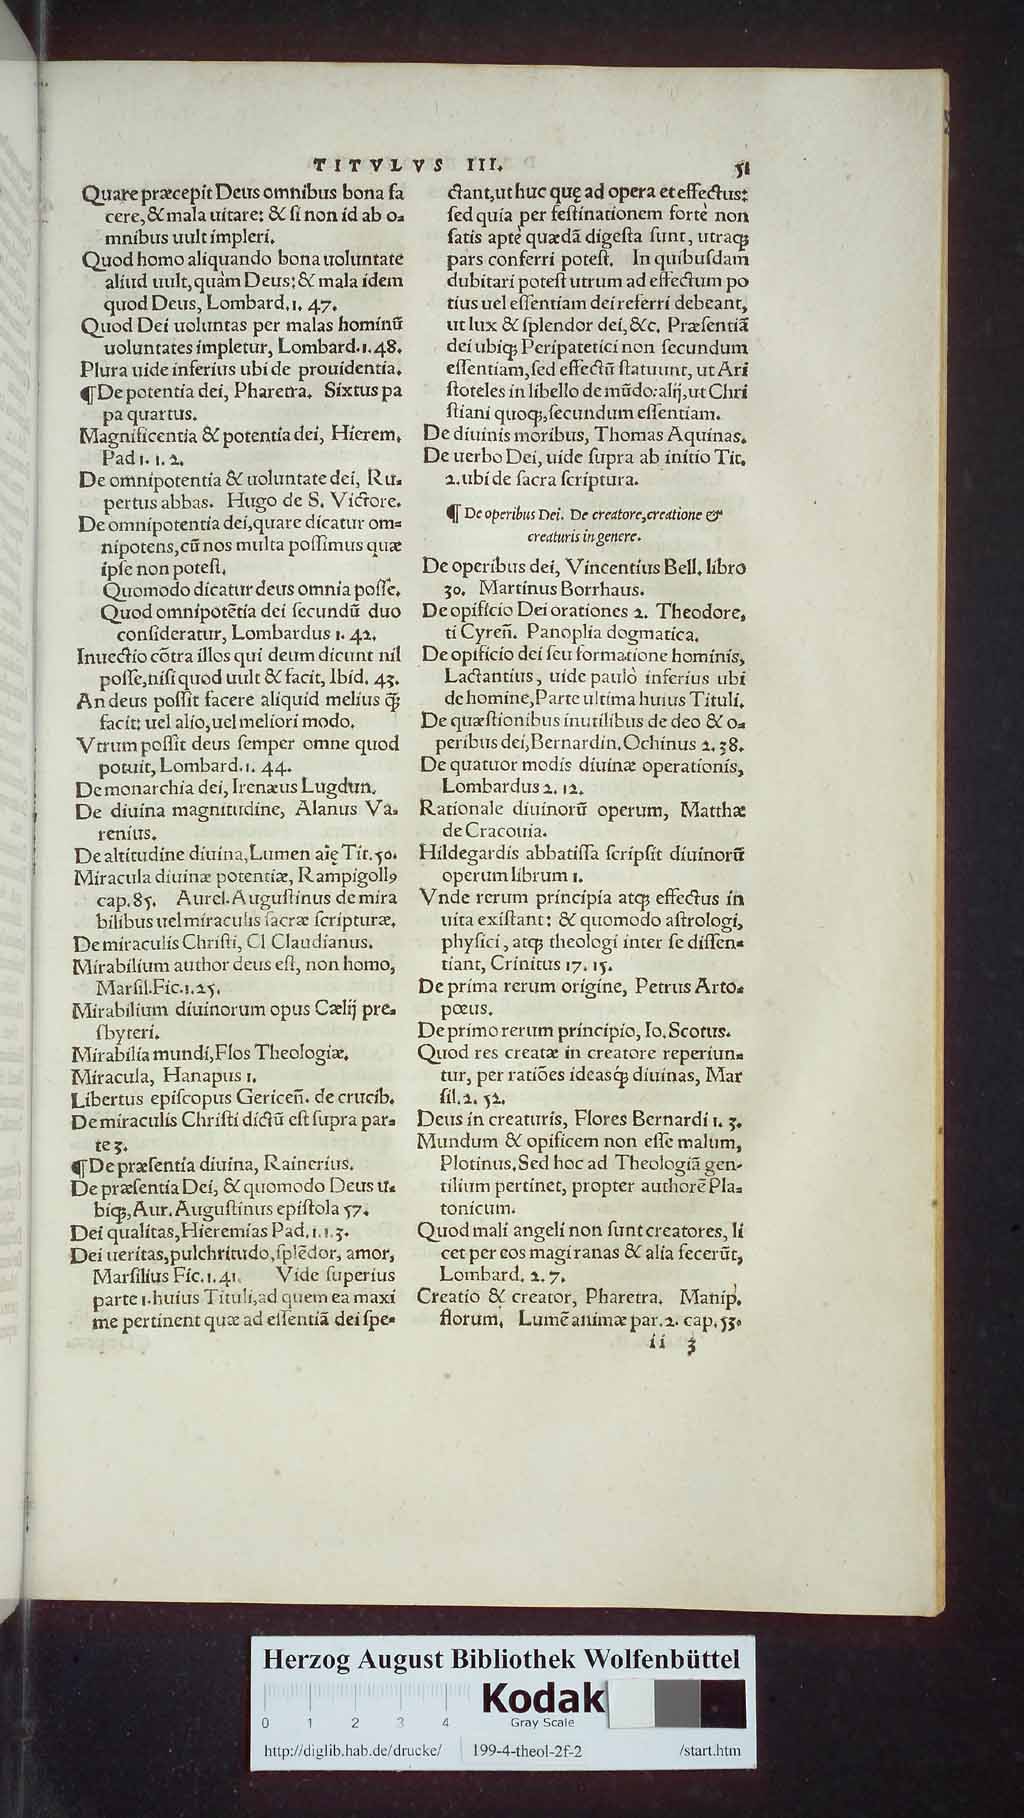 TITVLVS III. 51
Quare præcepit Deus omnibus bona fa
cere, & mala uitare: & si non id ab o-
mnibus uult impleri.
Quod homo aliquando bona uoluntate
aliud uult, quàm Deus: & mala idem
quod Deus, Lombard. 1. 47.
Quod Dei uoluntas per malas hominũ
uoluntates impletur, Lombard. 1. 48.
Plura uide inferius ubi de prouidentia.
¶ De potentia dei, Pharetra. Sixtus pa
pa quartus.
Magnificentia & potentia dei, Hierem.
Pad 1. 1. 2.
De omnipotentia & uoluntate dei, Ru-
pertus abbas. Hugo de S. Victore.
De omnipotentia dei, quare dicatur om-
nipotens, cũ nos multa possimus quæ
ipse non potest.
Quomodo dicatur deus omnia posse.
Quod omnipotẽtia dei secundũ duo
consideratur, Lombardus 1. 42.
Inuectio cõtra illos qui deum dicunt nil
posse, nisi quod uult & facit, Ibid. 43.
An deus possit facere aliquid melius q̃
facit: uel alio, uel meliori modo.
Vtrum possit deus semper omne quod
potuit, Lombard. 1. 44.
De monarchia dei, Irenæus Lugdun.
De diuina magnitudine, Alanus Va-
renius.
De altitudine diuina, Lumen aĩę Tit. 50.
Miracula diuinæ potentiæ, Rampigollꝯ
cap. 85. Aurel. Augustinus de mira
bilibus uel miraculis sacræ scripturæ.
De miraculis Christi, Cl Claudianus.
Mirabilium author deus est, non homo,
Marsil. Fic. 1. 25.
Mirabilium diuinorum opus Cælij pre-
sbyteri.
Mirabilia mundi, Flos Theologiæ.
Miracula, Hanapus 1.
Libertus episcopus Gericeñ. de crucib.
De miraculis Christi dictũ est supra par-
te 3.
¶ De præsentia diuina, Rainerius.
De præsentia Dei, & quomodo Deus u-
biqꝫ, Aur. Augustinus epistola 57.
Dei qualitas, Hieremias Pad. 1. 1. 3.
Dei ueritas, pulchritudo, splẽdor, amor,
Marsilius Fic. 1. 41. Vide superius
parte 1. huius Tituli, ad quem ea maxi
me pertinent quæ ad essentiã dei spe-
ctant, ut huc quę ad opera et effectus:
sed quia per festinationem fortè non
satis aptè quædã digesta sunt, utraqꝫ
pars conferri potest. In quibusdam
dubitari potest utrum ad effectum po
tius uel essentiam dei referri debeant,
ut lux & splendor dei, &c. Præsentiã
dei ubiqꝫ Peripatetici non secundum
essentiam, sed effectũ statuunt, ut Ari
stoteles in libello de mũdo: alij, ut Chri
stiani quoqꝫ, secundum essentiam.
De diuinis moribus, Thomas Aquinas.
De uerbo Dei, uide supra ab initio Tit.
2. ubi de sacra scriptura.
¶ De operibus Dei. De creatore, creatione &
creaturis in genere.
De operibus dei, Vincentius Bell. libro
30. Martinus Borrhaus.
De opificio Dei orationes 2. Theodore,
ti Cyreñ. Panoplia dogmatica.
De opificio dei seu formatione hominis,
Lactantius, uide paulò inferius ubi
de homine, Parte ultima huius Tituli.
De quæstionibus inutilibus de deo & o-
peribus dei, Bernardin. Ochinus 2. 38.
De quatuor modis diuinæ operationis,
Lombardus 2. 12.
Rationale diuinorũ operum, Matthæ
de Cracouia.
Hildegardis abbatissa scripsit diuinorũ
operum librum 1.
Vnde rerum principia atqꝫ effectus in
uita existant: & quomodo astrologi,
physici, atqꝫ theologi inter se dissen-
tiant, Crinitus 17. 15.
De prima rerum origine, Petrus Arto-
pœus.
De primo rerum principio, Io. Scotus.
Quod res creatæ in creatore reperiun-
tur, per ratiões ideasqꝫ́ diuinas, Mar
sil. 2. 52.
Deus in creaturis, Flores Bernardi 1. 3.
Mundum & opificem non esse malum,
Plotinus. Sed hoc ad Theologiã gen-
tilium pertinet, propter authorẽ Pla-
tonicum.
Quod mali angeli non sunt creatores, li
cet per eos magi ranas & alia fecerũt,
Lombard. 2. 7.
Creatio & creator, Pharetra. Manip.
florum. Lumẽ animæ par. 2. cap. 53.
ii 3
Herzog August Bibliothek Wolfenbüttel
Kodak
Gray Scale
0 1 2 3 4
http://diglib.hab.de/drucke/ 199-4-theol-2f-2 /start.htm